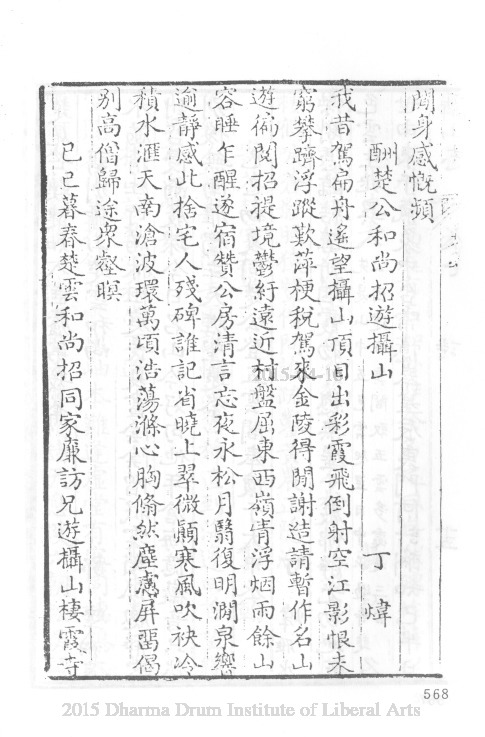 閒身感慨頻
酬楚公和尚招遊攝山
丁煒
我昔駕扁舟遙望攝山頂日出彩霞飛倒射空江影恨未
窮攀躋浮蹤歎萍梗稅駕來金陵得閒謝造請暫作名山
遊徧閱招禔境鬱紆遠近村盤屈東西嶺青浮烟雨餘山
容睡乍醒遂宿贊公房清言忘夜永松月翳復明澗泉響
逾靜感此捨宅人殘碑誰記省曉上翠微顚寒風吹袂冷
積水滙天南滄波環萬頃浩蕩滌心胸翛然塵慮屏畱偈
別高僧歸途衆壑暝
己巳暮春楚雲和尚招同家廉訪兄遊攝山棲霞寺
568
2015 Dharma Drum Institute of Liberal Arts